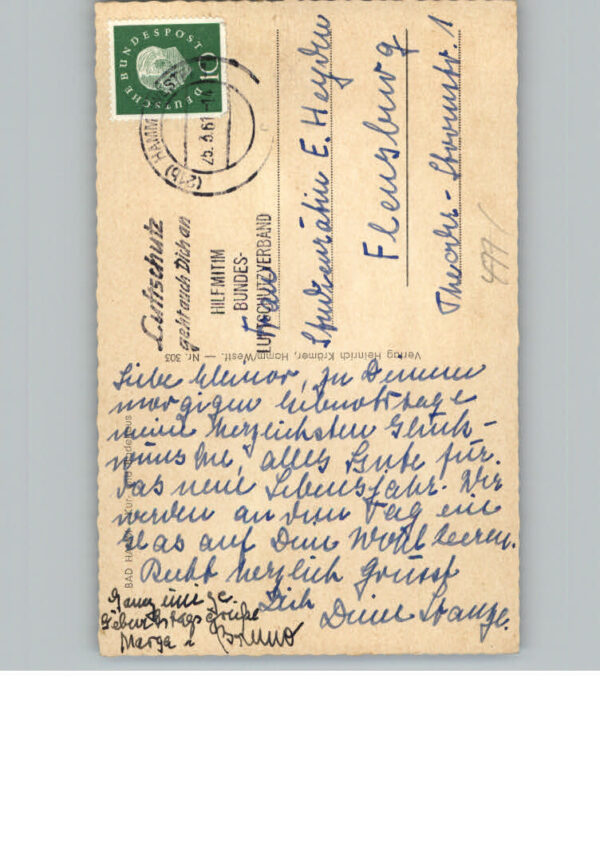 DEUTSCHE BUNDESPOST
10
(21b) HAMM
25.5.61
Luftschutz
geht auch Dich an
HILF MIT IM
BUNDES-
LUFTSCHUTZVERBAND
Frau
Studienrätin E. Heyden
Flensburg
Theodor-Stormstr. 1
Verlag Heinrich Krämer, Hamm/Westf. — Nr. 303
BAD HAMM
Liebe Elleinor, zu Deinem
morgigen Geburtstage
meine herzlichsten Glück-
wünsche, alles Gute für
das neue Lebensjahr. Wir
werden an dem Tag ein
Glas auf Dein Wohl leeren.
Recht herzlich grüsst
Dich Deine Stanze.
Ganz innige
Geburtstagsgrüße
Marga u Bruno